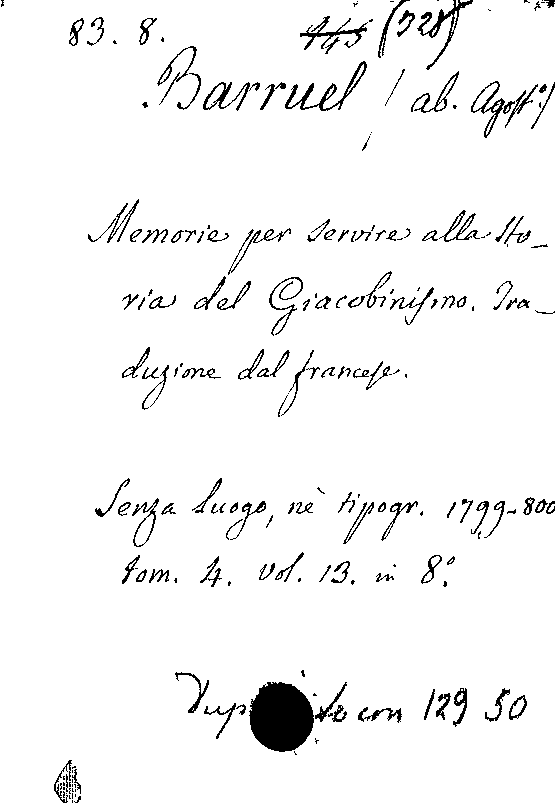 83. 8. 145 (328)
Barruel / ab. Agost.º/
Memorie per servire alla Sto_
ria del Giacobinismo. Tra_
duzione dal francese.
Senza luogo, nè tipogr. 1799-800
tom. 4. vol. 13. in 8.º
con 129 50